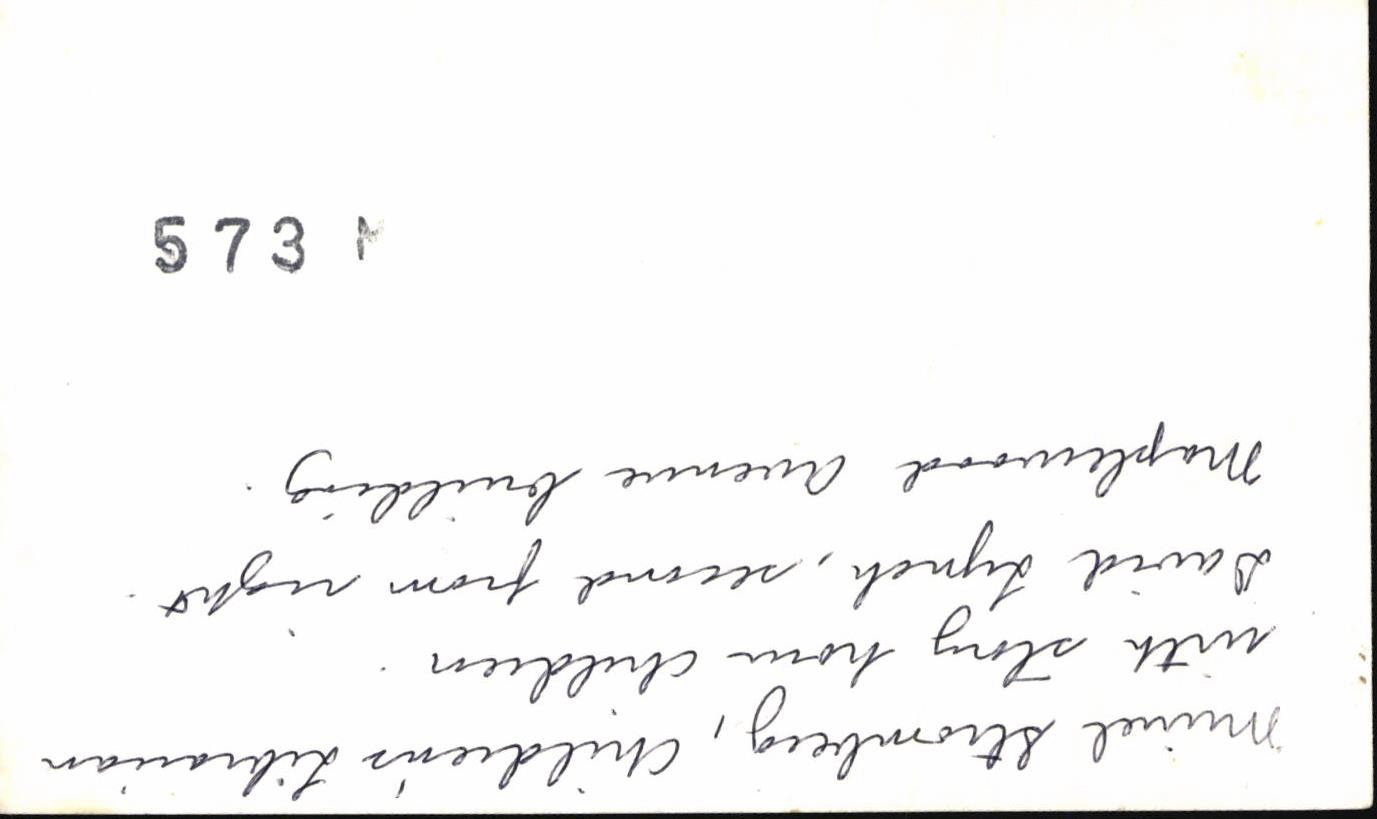 Muriel Stromberg, Children's Librarian
with story hour children.
David Lynch, second from right.
Maplewood Avenue building.
573